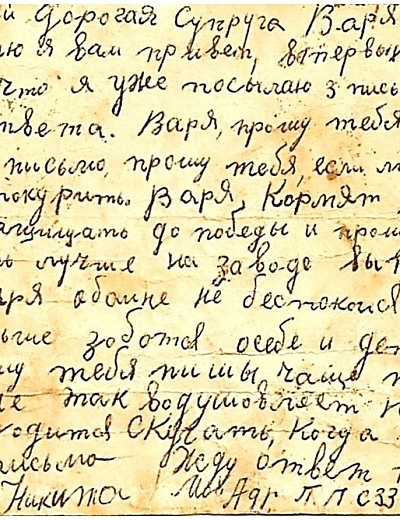 й дорогая Супруга Варя
ю я вам привет, впервы
что я уже посылаю 3 пись
твета. Варя, прошу тебя
письмо, прошу тебя, если
покурить. Варя, Кормят
ащищать до победы и прош
ь лучше на заводе
аря обомне не беспокойся
ьше заботься осебе и дет
шу тебя пишы чаще
ие так водушовляет
ходится Скучать, Когда
письмо Жду ответ
Никита Мой Адр. П.П С 33